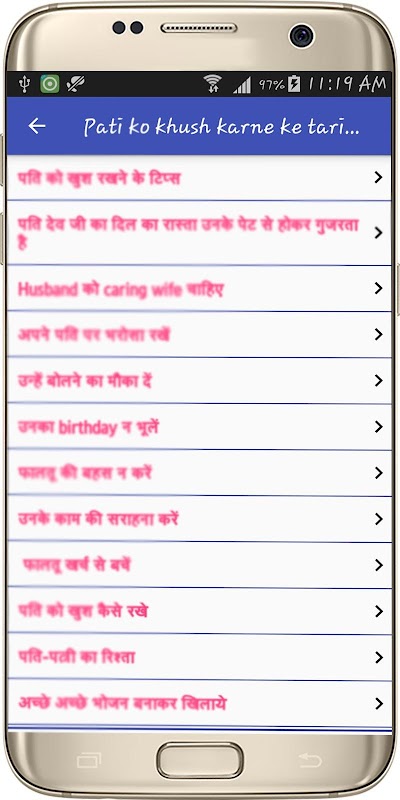 97% 11:19 AM
Pati ko khush karne ke tari...
पति को खुश रखने के टिप्स
पति देव जी का दिल का रास्ता उनके पेट से होकर गुजरता
है
Husband को caring wife चाहिए
अपने पति पर भरोसा रखें
उन्हें बोलने का मौका दें
उनका birthday न भूलें
फालतू की बहस न करें
उनके काम की सराहना करें
फालतू खर्च से बचें
पति को खुश कैसे रखे
पति-पत्नी का रिश्ता
अच्छे अच्छे भोजन बनाकर खिलाये